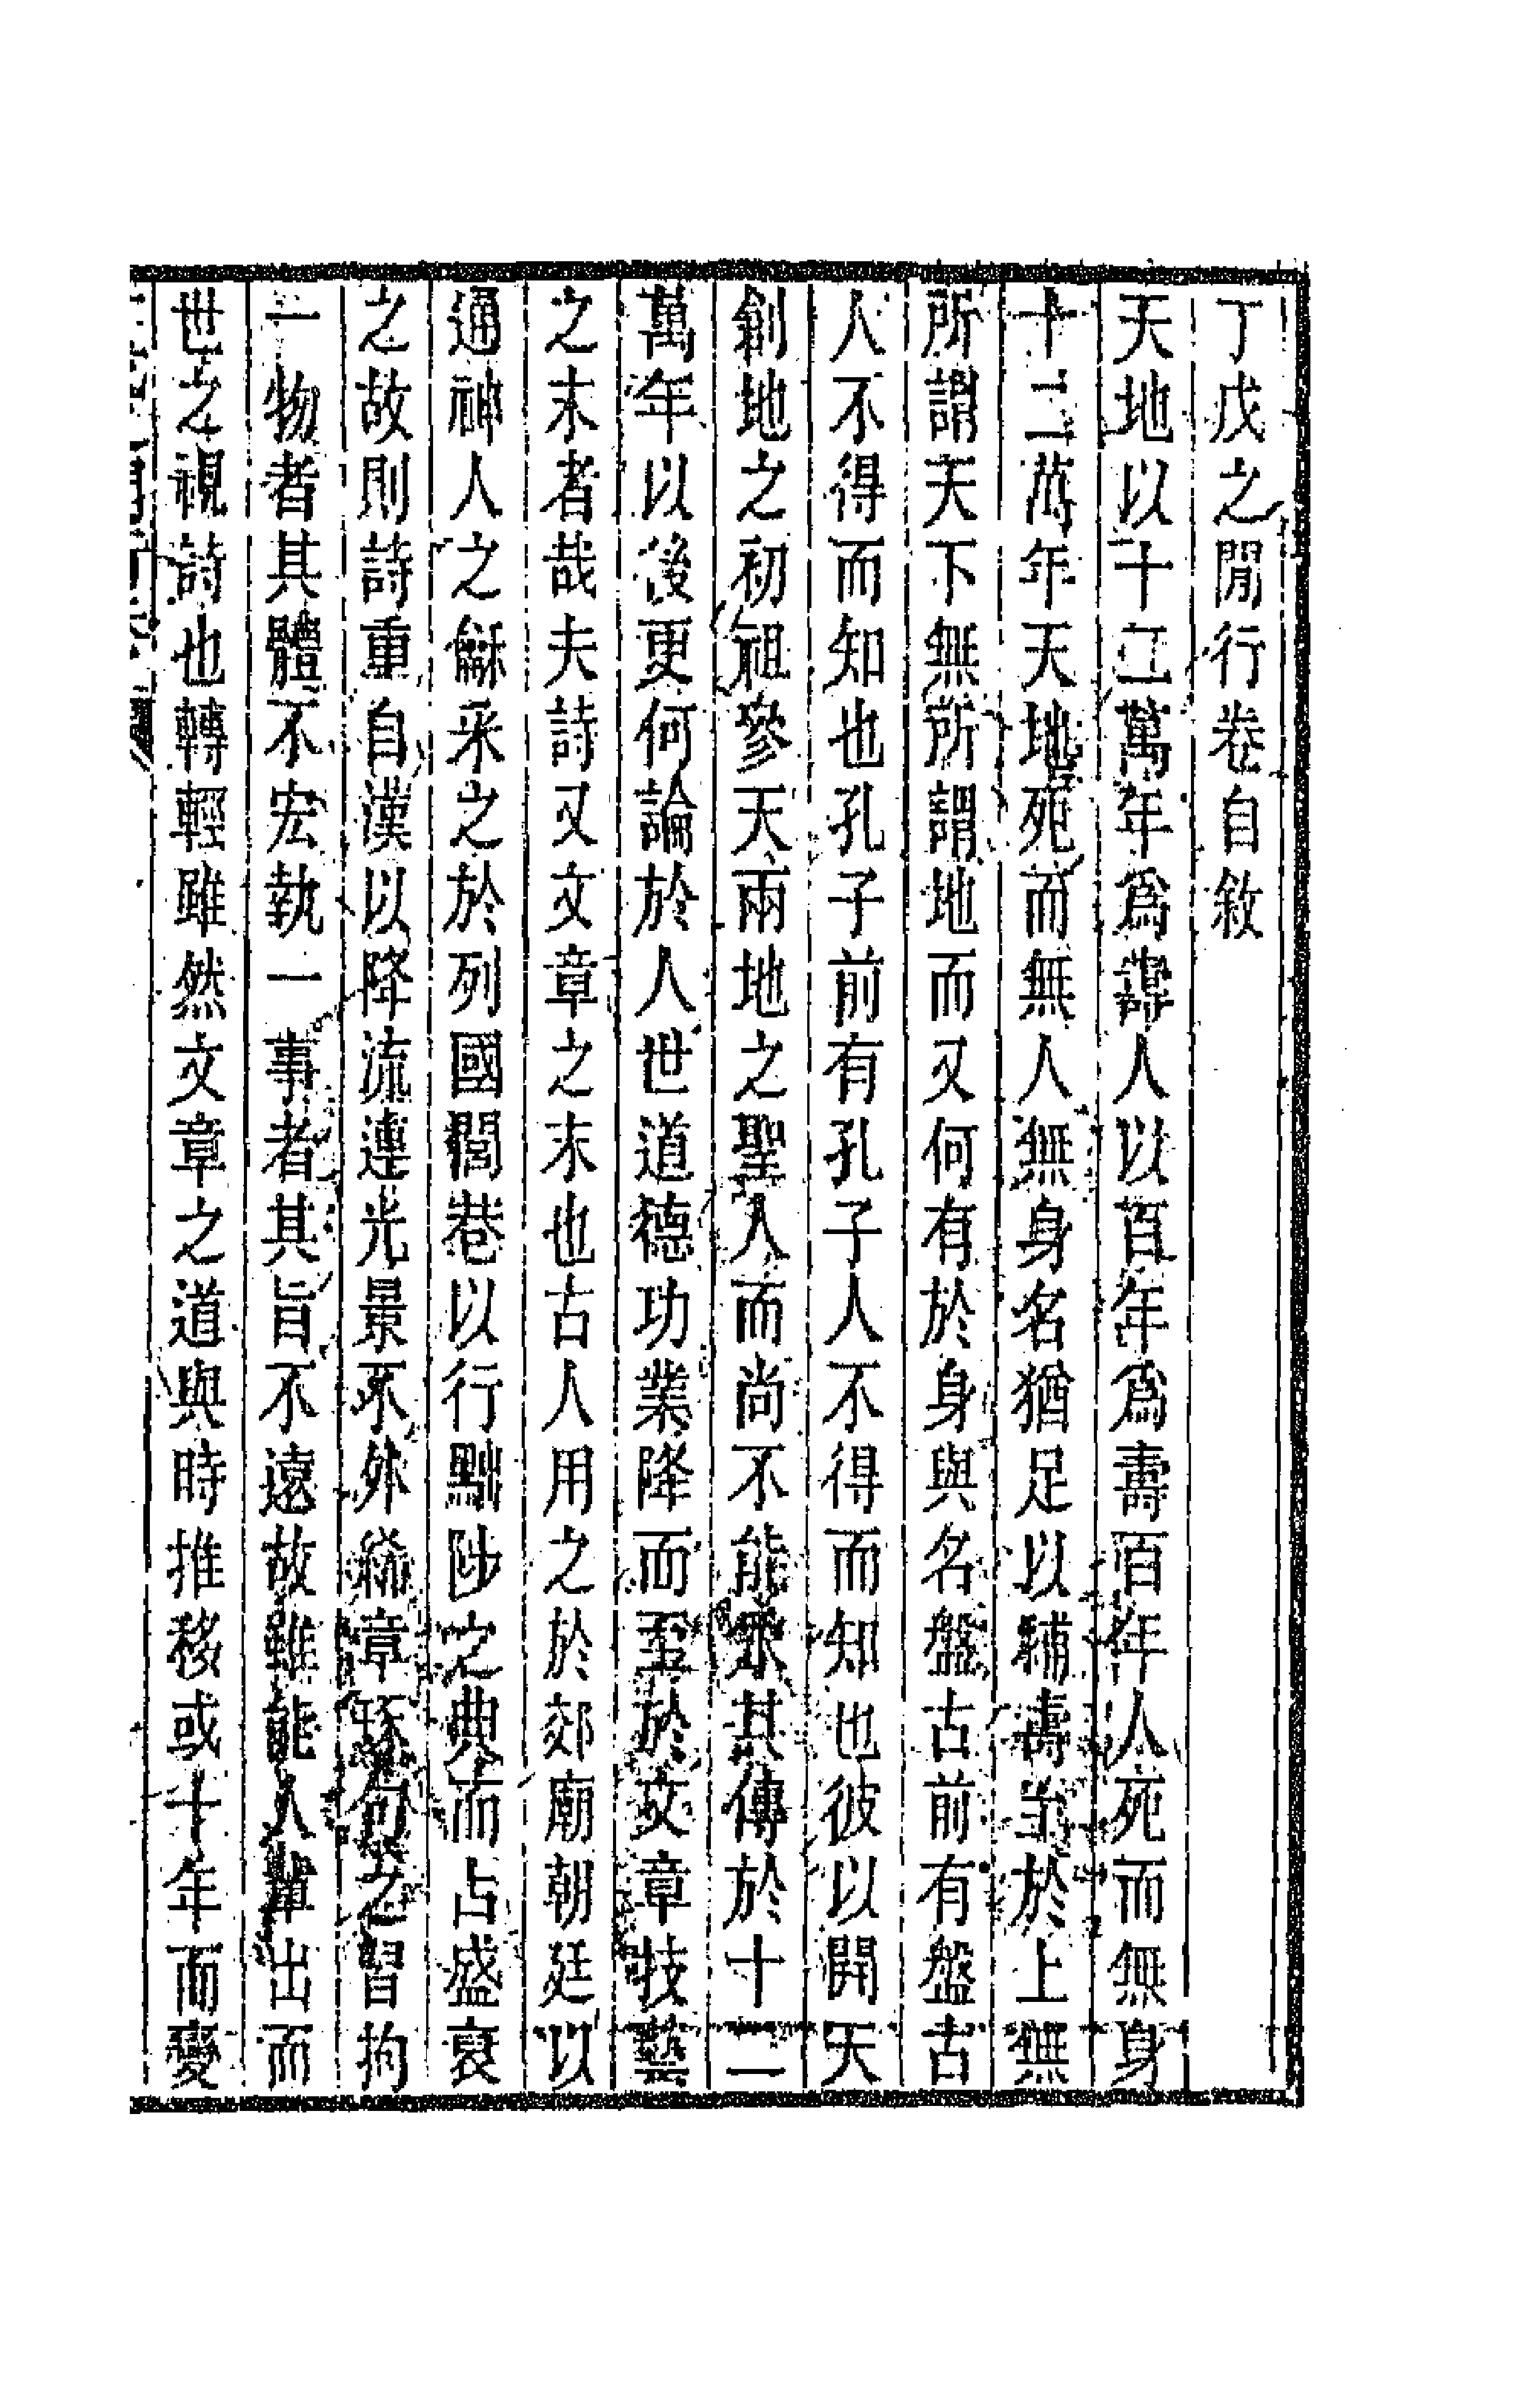 丁戊之閒行卷自敘
天地以十二萬年爲壽人以百年爲壽百年人死而無身
十二萬年天地死而無人無身名猶足以補壽至於上無
所謂天下無所謂地而又何有於身與名盤古前有盤古
人不得而知也孔子前有孔子人不得而知也彼以開天
創地之初祖參天兩地之聖人而尚不能永其傳於十二
萬年以後更何論於人世道德功業降而至於文章技藝
之末者哉夫詩又文章之末也古人用之於郊廟朝廷以
通神人之龢采之於列國閭巷以行黜陟之典而占盛衰
之故則詩重自漢以降流連光景不外絺章琢句之習拘
一物者其體不宏執一事者其旨不遠故雖能人輩出而
世之視詩也轉輕雖然文章之道與時推移或十年而變